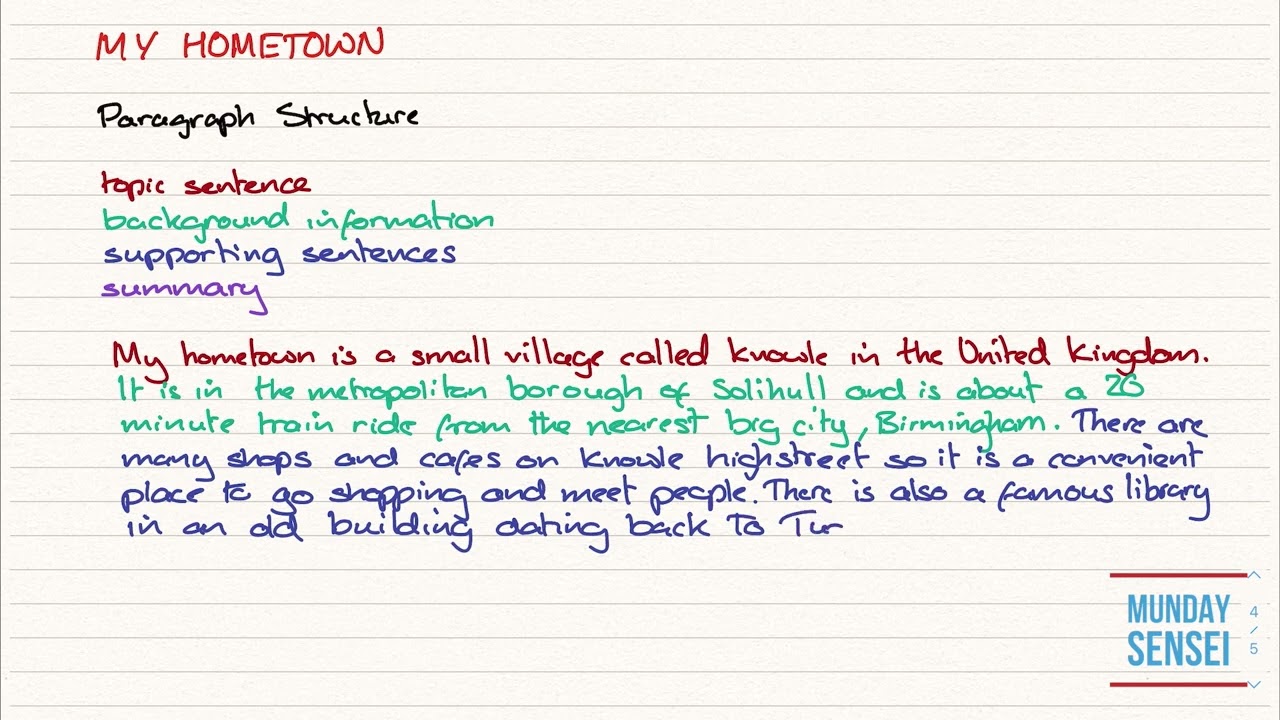 MY HOMETOWN
Paragraph Structure
topic sentence
background information
supporting sentences
summary
My hometown is a small village called Knowle in the United Kingdom.
It is in the metropolitan borough of Solihull and is about a 26
minute train ride from the nearest big city, Birmingham. There are
many shops and cafes on Knowle highstreet so it is a convenient
place to go shopping and meet people. There is also a famous library
in an old building dating back to Tur
MUNDAY
SENSEI
4
/
5